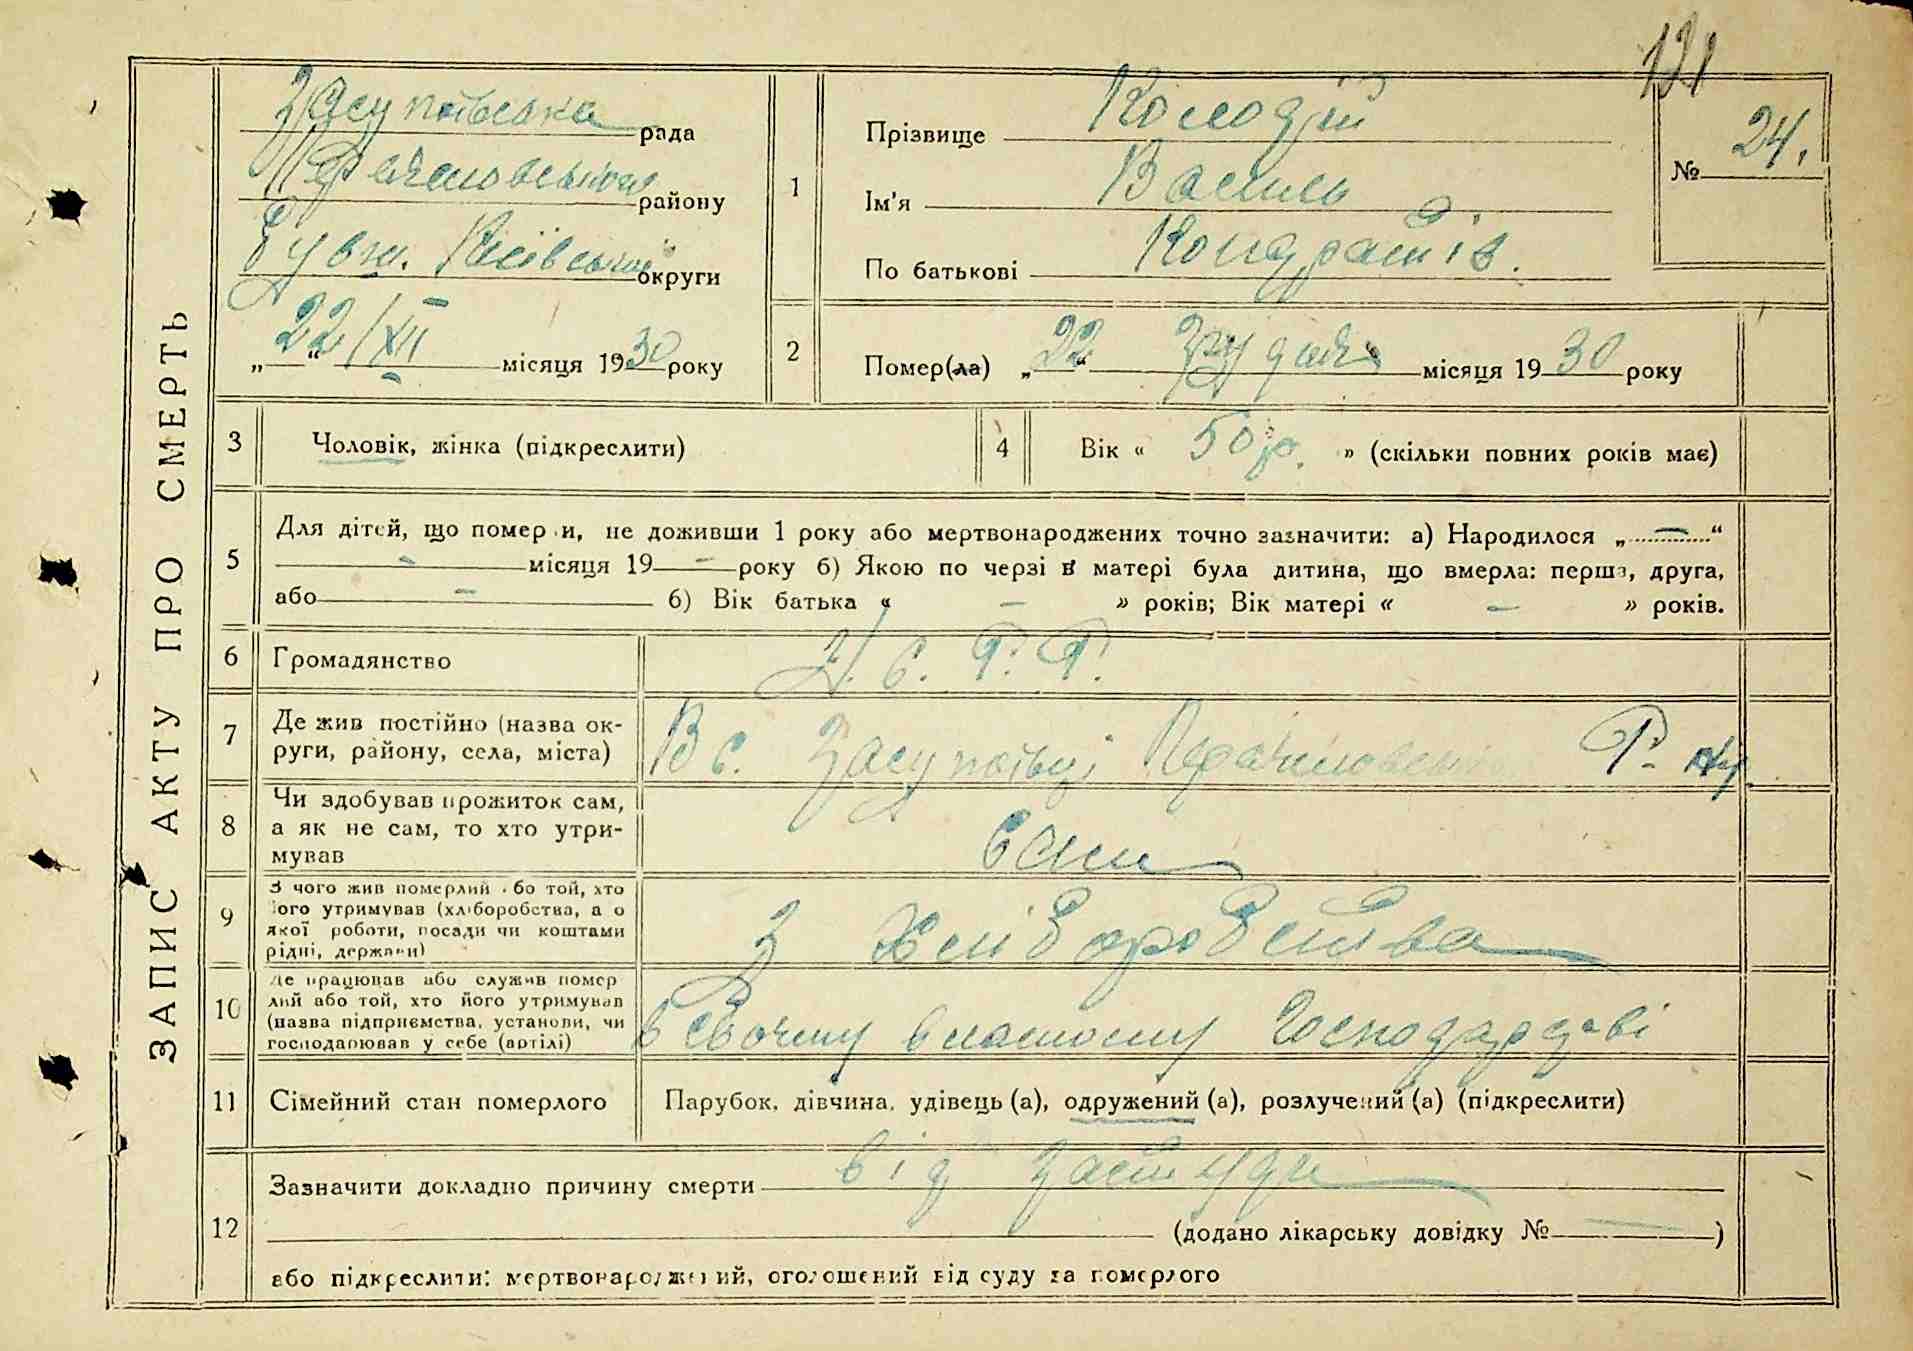 121
ЗАПИС АКТУ ПРО СМЕРТЬ
Засупоївська рада
району
Бувш. Київської округи
„22“ XII місяця 1930 року
1
Прізвище Колодій
Ім'я Василь
По батькові Кондратів.
№ 24.
2
Помер(ла) „22“ Грудня місяця 1930 року
3 Чоловік, жінка (підкреслити)
4 Вік « 50 р. » (скільки повних років має)
5 Для дітей, що померли, не доживши 1 року або мертвонароджених точно зазначити: а) Народилося „—“
— місяця 19 — року б) Якою по черзі в матері була дитина, що вмерла: перша, друга,
або — б) Вік батька « — » років; Вік матері « — » років.
6 Громадянство У. С. Р. Р.
7 Де жив постійно (назва ок-
руги, району, села, міста) В с. Засупоївці Р.
8 Чи здобував прожиток сам,
а як не сам, то хто утри-
мував сам
9 З чого жив померлий або той, хто
його утримував (хліборобства, а о
якої роботи, посади чи коштами
рідні, держави) З Хліборобства
10 Де працював або служив помер
лий або той, хто його утримував
(назва підприємства, установи, чи
господарював у себе (артілі) В Свойму власному Господарстві
11 Сімейний стан померлого Парубок, дівчина, удівець (а), одружений (а), розлучений (а) (підкреслити)
12 Зазначити докладно причину смерти від застуди
(додано лікарську довідку № — )
або підкреслити: мертвонароджений, оголошений від суду за померлого